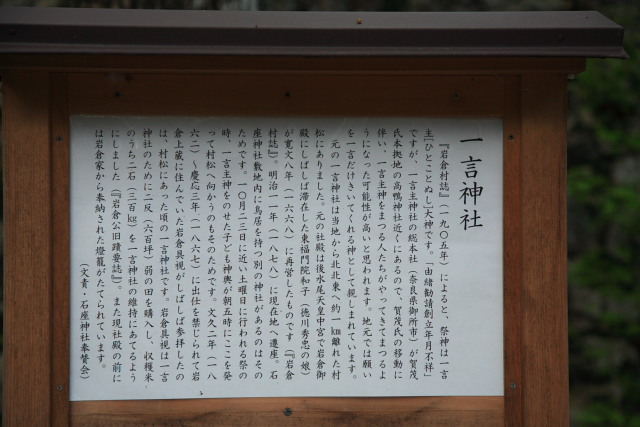 一言神社
『岩倉村誌』(一九〇五年)によると、祭神は一言
主[ひとことぬし]大神です。「由緒勧請創立年月不祥」
ですが、一言主神の総本社(奈良県御所市)が賀茂
氏本拠地の高鴨神社近くにあるので、賀茂氏の移動に
伴い、一言主神をまつる人たちがやってきてまつるよ
うになった可能性が高いと思われます。地元では願い
を一言だけきいてくれる神として親しまれています。
元の一言神社は当地から北北東へ約一㎞離れた村
松にありました。元の社殿は後水尾天皇中宮で岩倉御
殿にしばしば滞在した東福門院和子(徳川秀忠の娘)
が寛文八年(一六六八)に再営したものです(『岩倉
村誌』)。明治一一年(一八七八)に現在地へ遷座。石
座神社敷地内に鳥居を持つ別の神社があるのはその
ためです。一〇月二三日に近い土曜日に行われる祭の
時、一言主神をのせた子ども神輿が朝五時にここを発
って村松へ向かうのもそのためです。文久二年(一八
六二)~慶応三年(一八六七)に出仕を禁じられて岩
倉上蔵に住んでいた岩倉具視がしばしば参拝したの
は、村松にあった頃の一言神社です。岩倉具視は一言
神社のために二反(六百坪)弱の田を購入し、収穫米
のうち二石(三百㎏)を一言神社の維持にあてるよう
にしました(『岩倉公旧蹟要誌』)。また現社殿の前に
は岩倉家から奉納された燈籠がたてられています。
(文責・石座神社奉賛会)